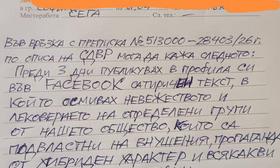 в гр.
СЕГА
Сл. тел.
ВЪВ ВРЪЗКА С ПРЕПИСКА №513000-28403/26г.
ПО ОПИСА НА СДВР МОГА ДА КАЖА СЛЕДНОТО:
ПРЕДИ 3 ДНИ ПУБЛИКУВАХ В ПРОФИЛА СИ
ВЪВ FACEBOOK САТИРИЧЕН ТЕКСТ, В
КОЙТО ОСМИВАХ НЕВЕЖЕСТВОТО И
ЛЕКОВЕРИЕТО НА ОПРЕДЕЛЕНИ ГРУПИ
ОТ НАШЕТО ОБЩЕСТВО, КОИТО СА
ПОДВЛАСТНИ НА ВНУШЕНИЯ, ПРОПАГАНДА
ОТ ХИБРИДЕН ХАРАКТЕР И ВСЯКАКВИ